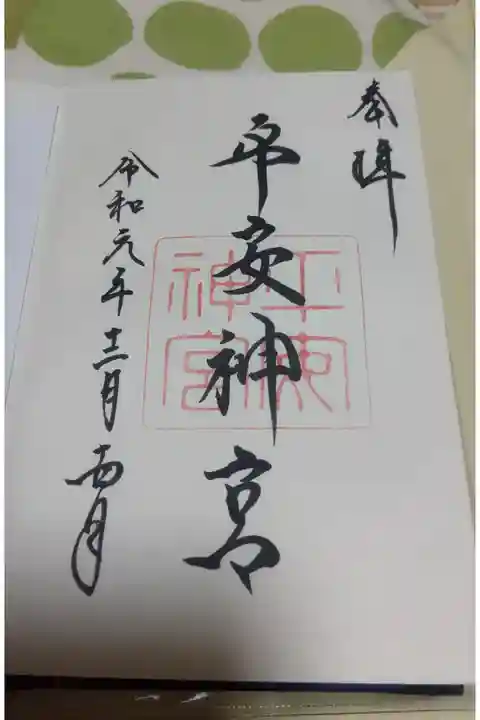 奉拝
平安神宮
平安神宮
令和元年十二月 日